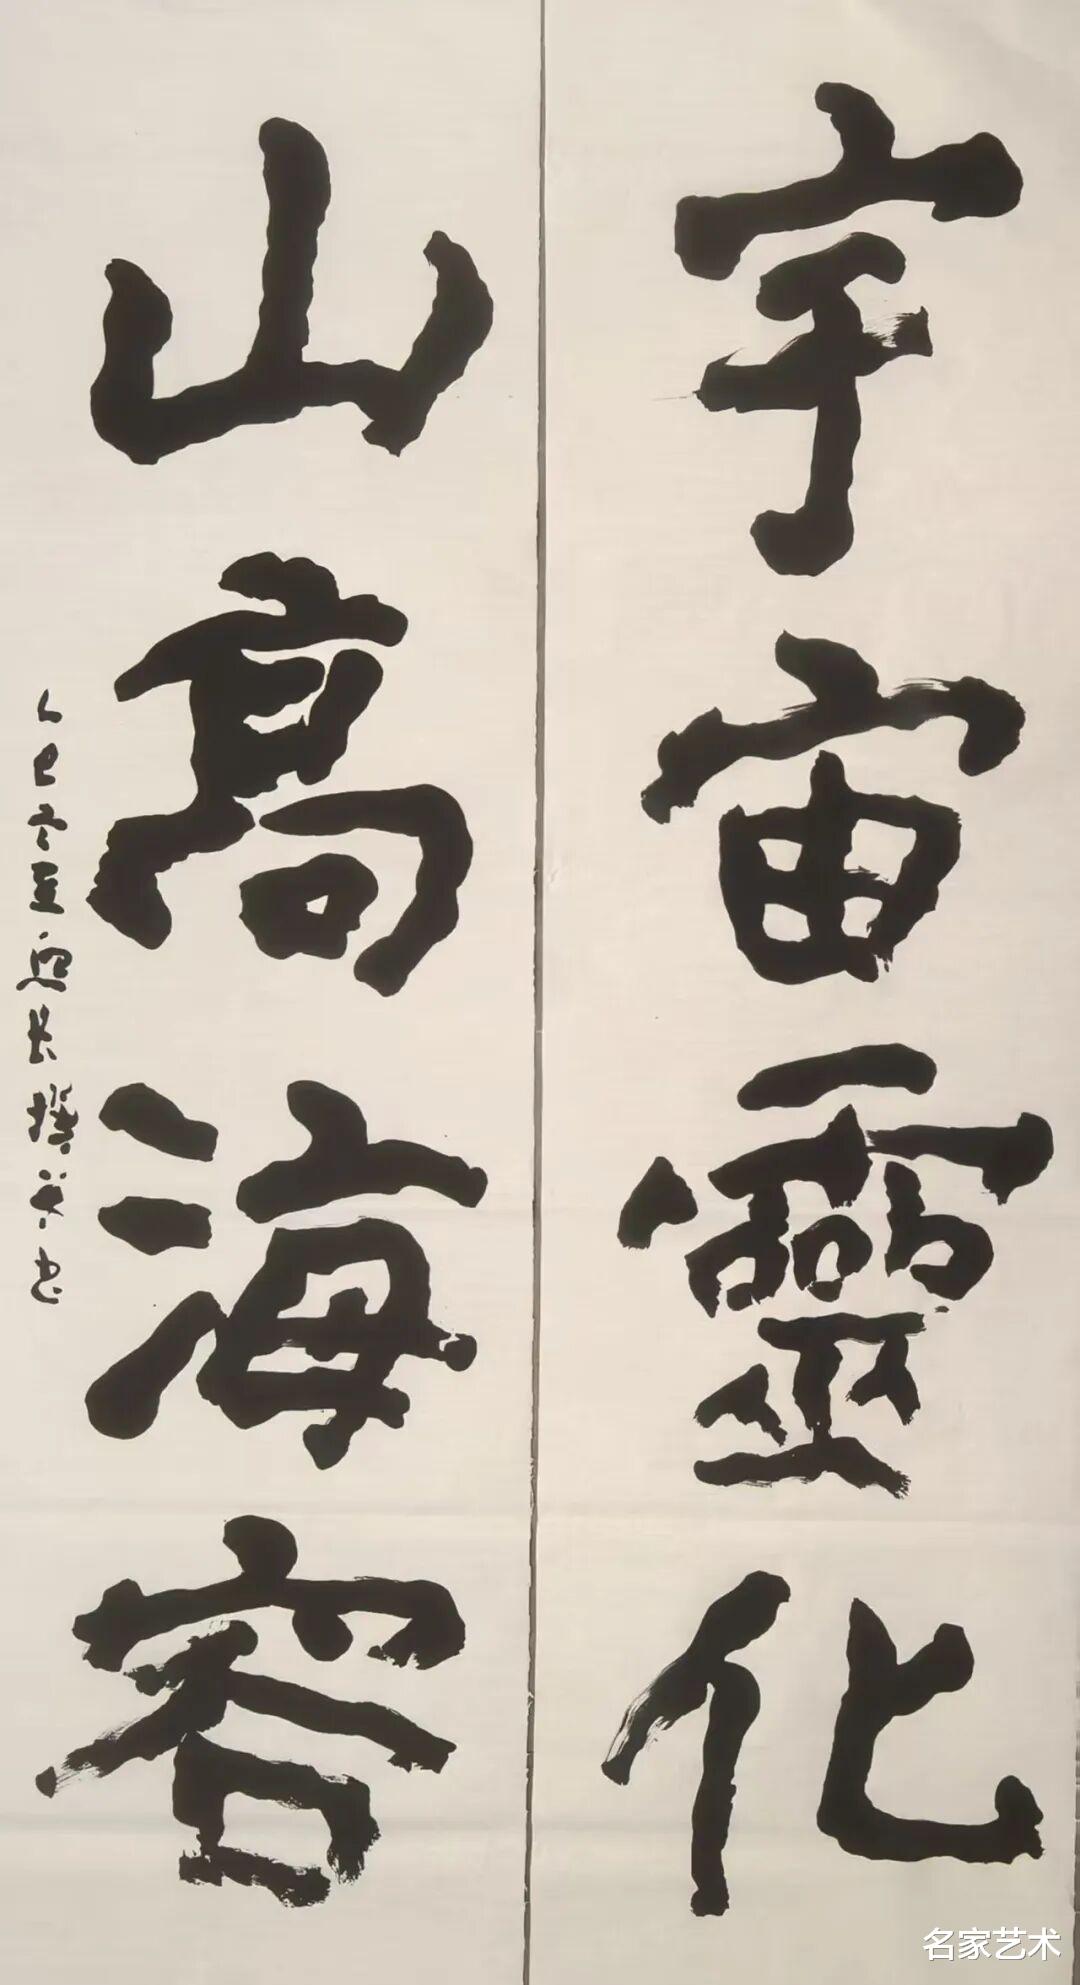 宇宙靈化
山高海容
乙巳冬至
長撰並書
名家艺术